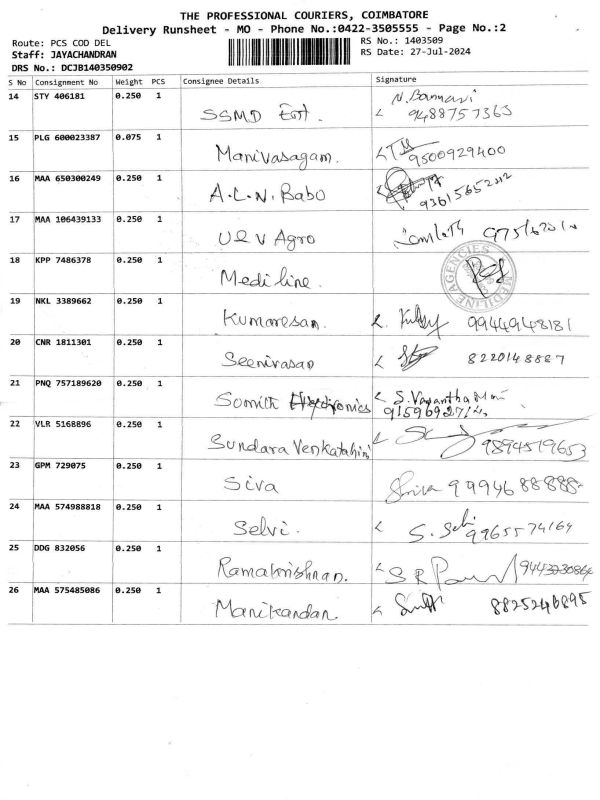 THE PROFESSIONAL COURIERS, COIMBATORE
Delivery Runsheet - MO - Phone No.:0422-3505555 - Page No.:2
Route: PCS COD DEL
RS No.: 1403509
Staff: JAYACHANDRAN
RS Date: 27-Jul-2024
DRS No.: DCJB140350902
S No Consignment No Weight PCS Consignee Details Signature
14 STY 406181 0.250 1
SSMD Est. 9488757363
15 PLG 600023387 0.075 1
Manivasagam. 9500929400
16 MAA 650300249 0.250 1
A.L.N. Babo
17 MAA 106439133 0.250 1
U&V Agro
18 KPP 7486378 0.250 1
Mediline. AGENCIES MEDILINE
19 NKL 3389662 0.250 1
Kumaresan. 9944948181
20 CNR 1811301 0.250 1
Seenivasan 8220148887
21 PNQ 757189620 0.250 1
S.Vasantha
22 VLR 5168896 0.250 1
Sundara Venkata 9894519653
23 GPM 729075 0.250 1
Siva 9994688888
24 MAA 574988818 0.250 1
Selvi. S. Selvi 9965574164
25 DDG 832056 0.250 1
Ramakrishnan.
26 MAA 575485086 0.250 1
Manikandan. 8825246895